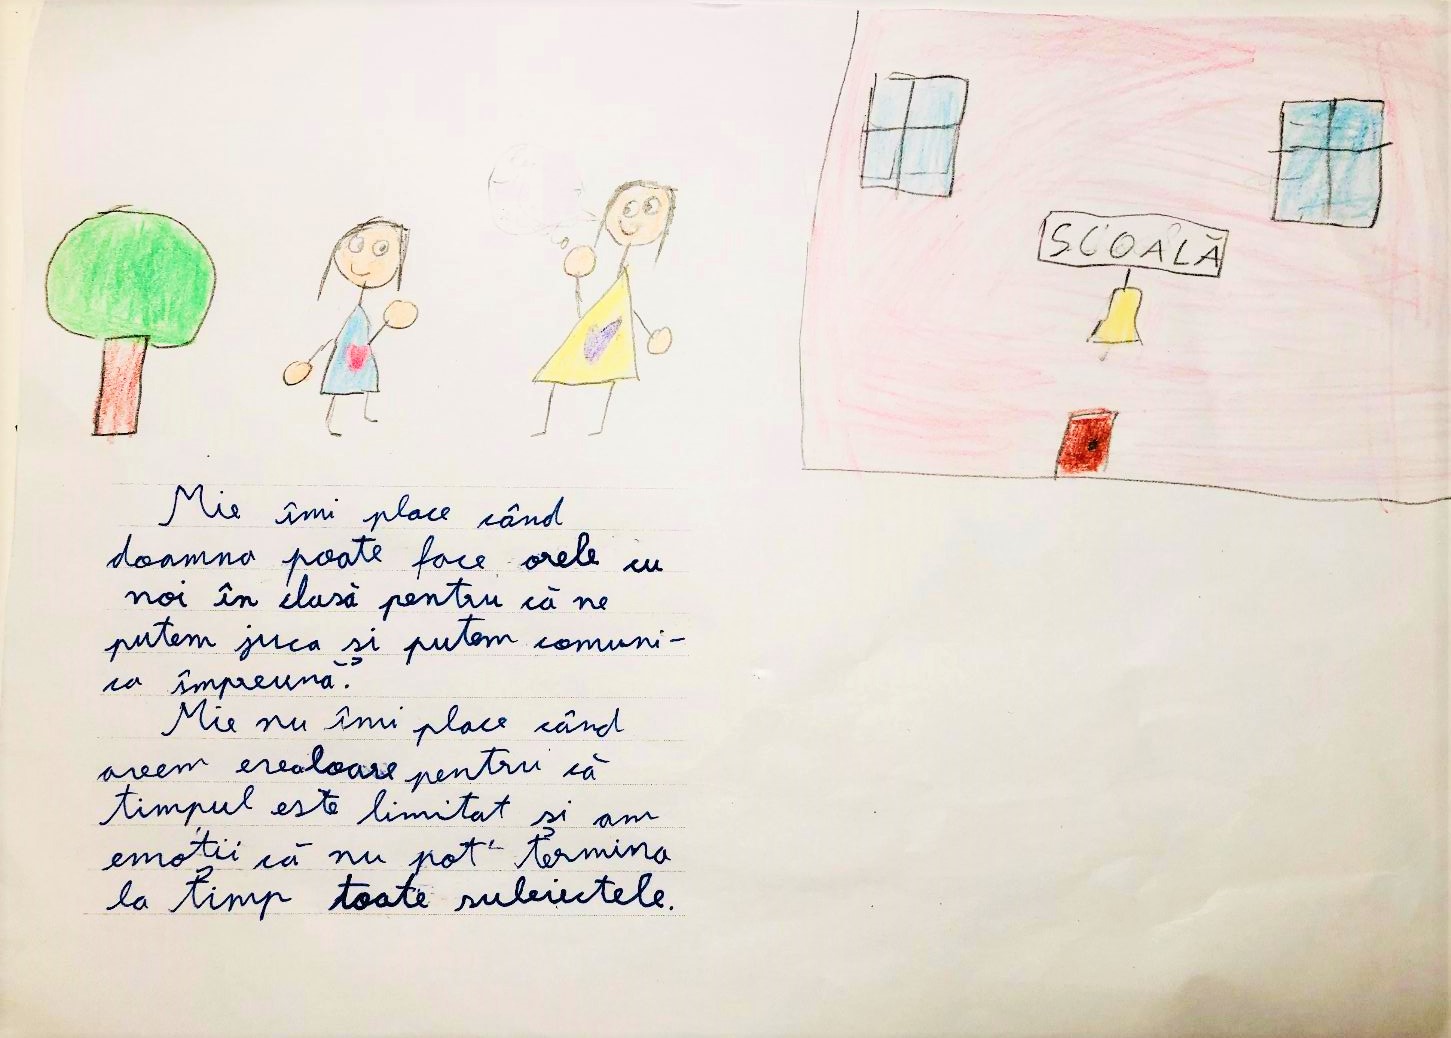 SCOALĂ
Mie îmi place când
doamna poate face orele cu
noi în clasă pentru că ne
putem juca și putem comuni-
ca împreună.
Mie nu îmi place când
avem evaloare pentru că
timpul este limitat și am
emoții că nu pot termina
la timp toate subiectele.